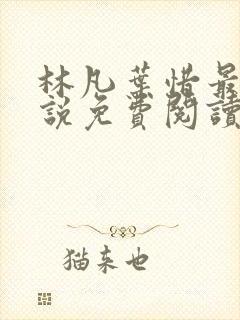 林凡葉惜最
說免費閱讀
猫来也